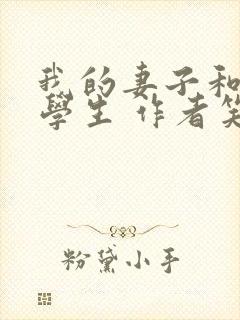 我的妻子和
學生 作者笑
粉黛小手